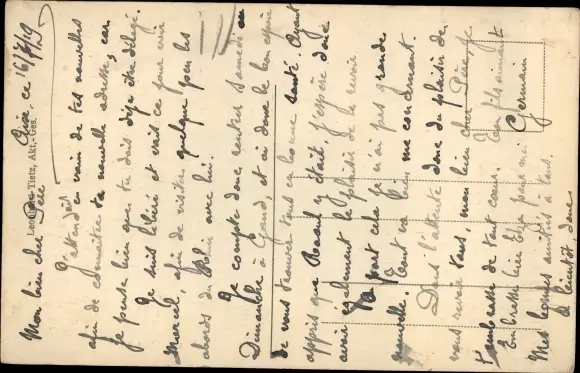 Aix, ce 16/7/19
Mon bien cher Père
J'attends en vain de tes nouvelles
afin de connaître ta nouvelle adresse, car
je pense bien que tu dois déjà être délogé.
Je suis libéré et vais ce jour voir
Marcel, afin de visiter quelque peu les
abords du Rhin avec lui.
Je compte donc rentrer samedi ou
Dimanche à Gand, et ai donc le bon espoir
de vous trouver tous en bonne santé. Ayant
appris que Raoul y était, j'espère donc
avoir également le plaisir de le revoir
A part cela je n'ai pas grande
nouvelle. Tout va bien me concernant.
Dans l'attente donc du plaisir de
vous revoir tous, mon bien cher Père, je
t'embrasse de tout cœur. Ton fils aimant
Embrasse bien pour moi Germain
Mes bonnes amitiés à tous.
A bientôt donc
Tietz, Akt.-Ges.